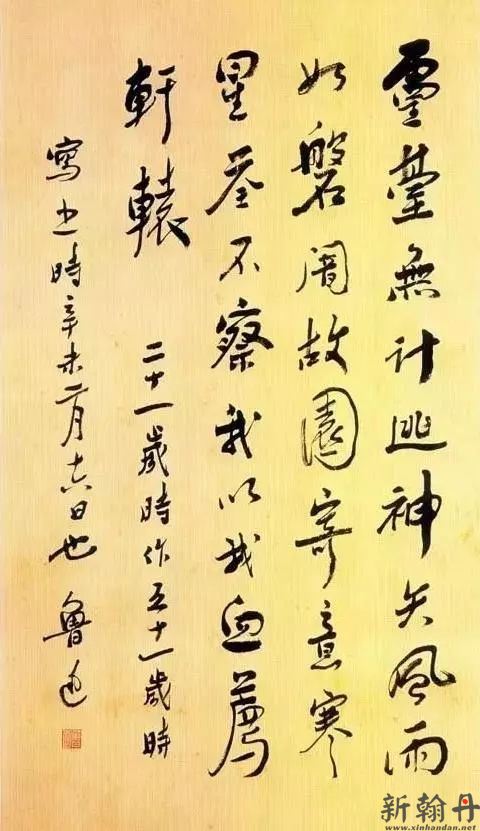 靈臺無計逃神矢風雨
如磐闇故園寄意寒
星荃不察我以我血薦
軒轅 二十一歲時作五十一歲時
寫之時辛未二月十六日也 魯迅
新翰丹
www.xinhandan.net